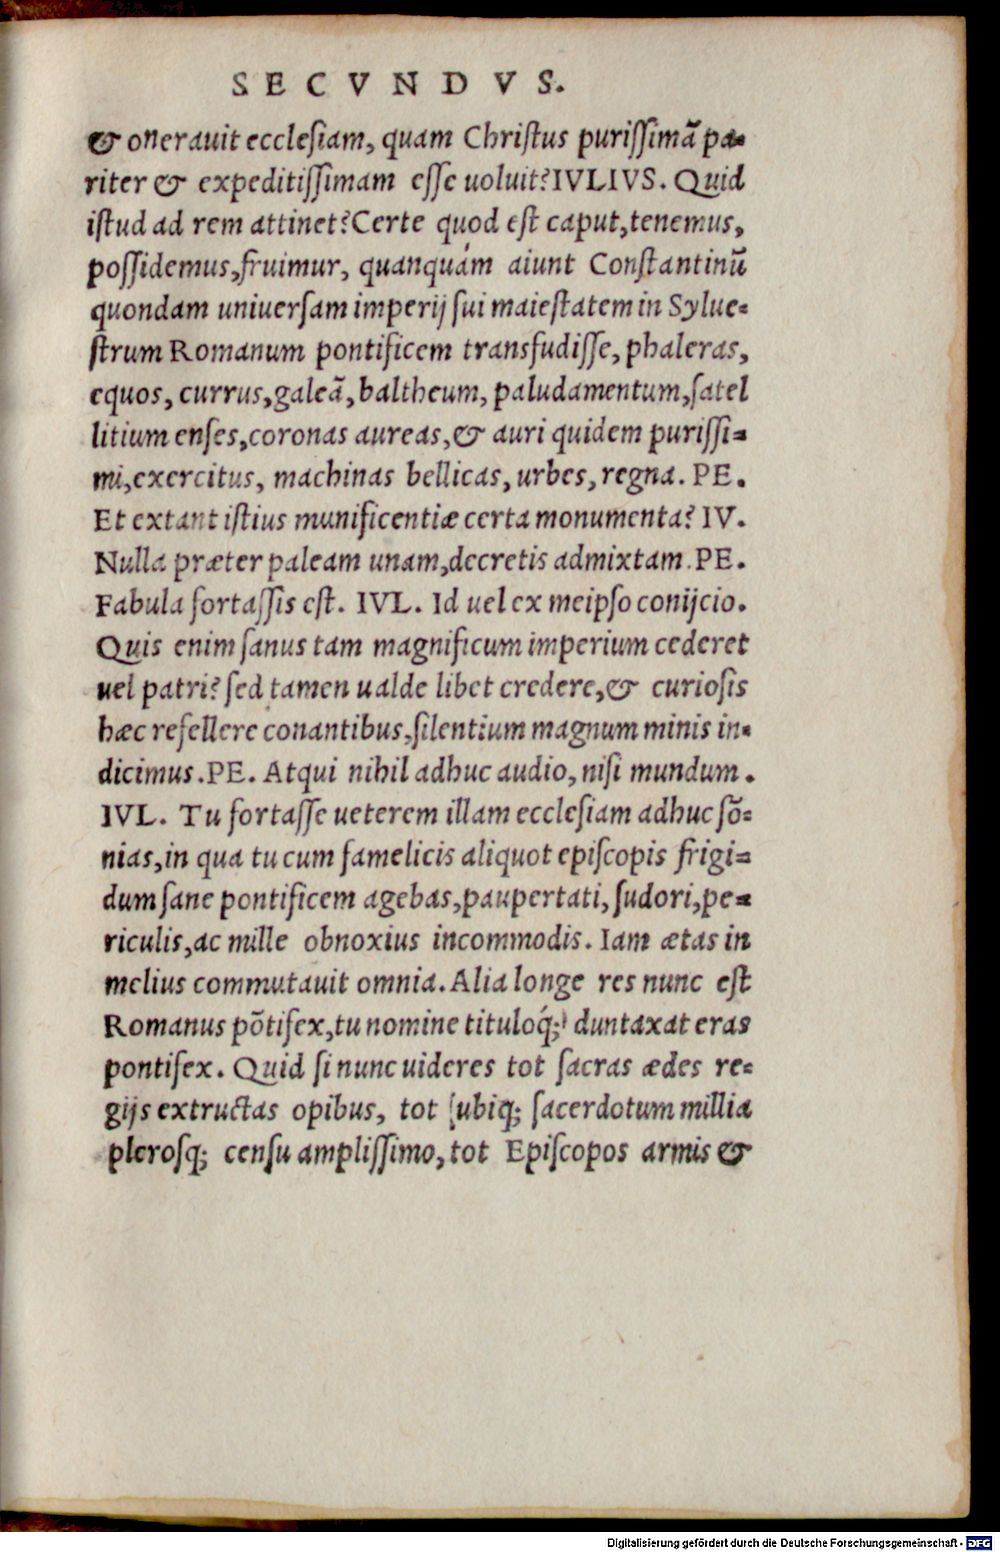 SECVNDVS.
& onerauit ecclesiam, quam Christus purissimā pa-
riter & expeditissimam esse uoluit? IVLIVS. Quid
istud ad rem attinet? Certe quod est caput, tenemus,
possidemus, fruimur, quanquám aiunt Constantinū
quondam uniuersam imperij sui maiestatem in Sylue-
strum Romanum pontificem transfudisse, phaleras,
equos, currus, galeā, baltheum, paludamentum, satel
litium enses, coronas aureas, & auri quidem purissi-
mi, exercitus, machinas bellicas, urbes, regna. PE.
Et extant istius munificentiæ certa monumenta? IV.
Nulla præter paleam unam, decretis admixtam. PE.
Fabula fortassis est. IVL. Id uel ex meipso conijcio.
Quis enim sanus tam magnificum imperium cederet
uel patri? sed tamen ualde libet credere, & curiosis
hæc refellere conantibus, silentium magnum minis in-
dicimus. PE. Atqui nihil adhuc audio, nisi mundum.
IVL. Tu fortasse ueterem illam ecclesiam adhuc sō-
nias, in qua tu cum famelicis aliquot episcopis frigi-
dum sane pontificem agebas, paupertati, sudori, pe-
riculis, ac mille obnoxius incommodis. Iam ætas in
melius commutauit omnia. Alia longe res nunc est
Romanus pōtifex, tu nomine tituloq́; duntaxat eras
pontifex. Quid si nunc uideres tot sacras ædes re-
gijs extructas opibus, tot [ubiq; sacerdotum millia
plerosq; censu amplissimo, tot Episcopos armis &
Digitalisierung gefördert durch die Deutsche Forschungsgemeinschaft - DFG